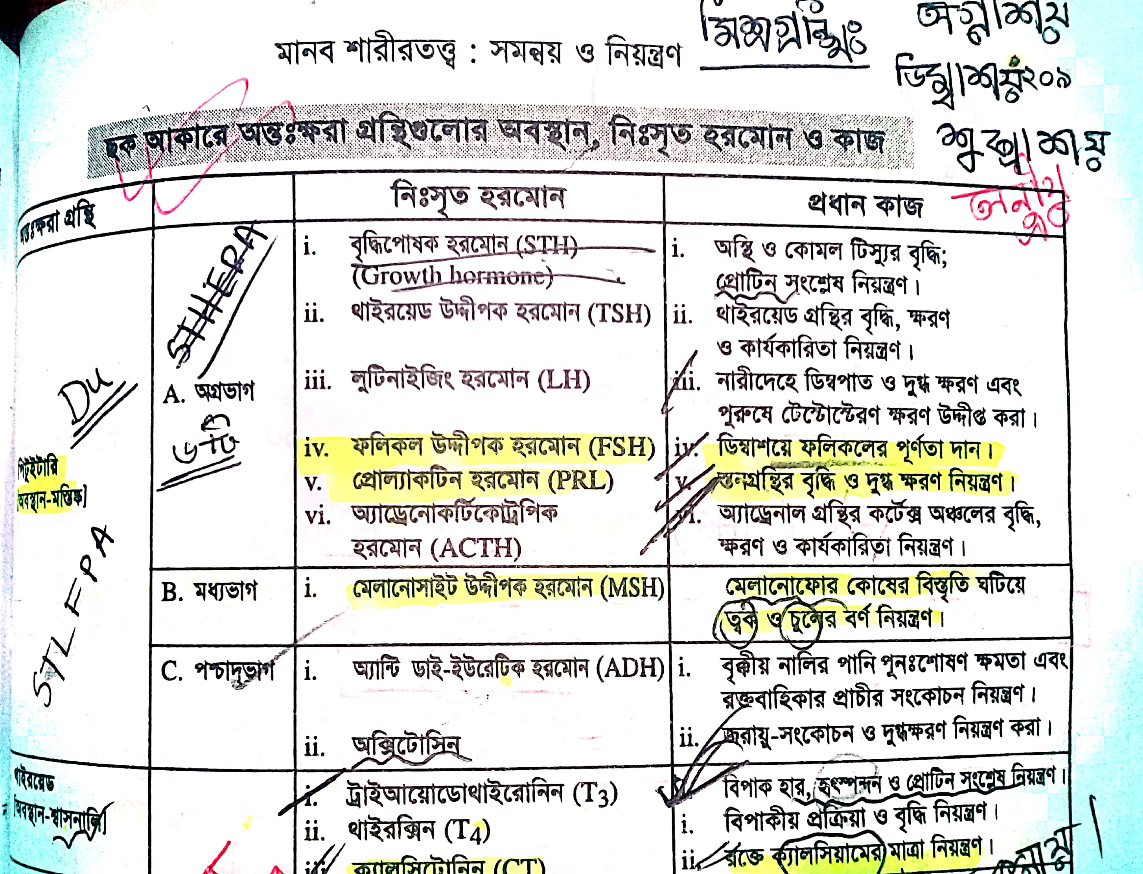 মানব শারীরতত্ত্ব : সমন্বয় ও নিয়ন্ত্রণ
মিশ্রগ্রন্থিঃ
অগ্নাশয়
ডিম্বাশয়
২০৯
শুক্রাশয়
ছক আকারে অন্তঃক্ষরা গ্রন্থিগুলোর অবস্থান, নিঃসৃত হরমোন ও কাজ
গ্রন্থি
নিঃসৃত হরমোন
প্রধান কাজ
STHEPA
DU
STLFPA
পিটুইটারি
[অবস্থান-মস্তিষ্ক]
A. অগ্রভাগ
৬টি
i. বৃদ্ধিপোষক হরমোন (STH)
(Growth hormone)
ii. থাইরয়েড উদ্দীপক হরমোন (TSH)
iii. লুটিনাইজিং হরমোন (LH)
iv. ফলিকল উদ্দীপক হরমোন (FSH)
v. প্রোল্যাকটিন হরমোন (PRL)
vi. অ্যাড্রেনোকর্টিকোট্রপিক
হরমোন (ACTH)
i. অস্থি ও কোমল টিস্যুর বৃদ্ধি;
প্রোটিন সংশ্লেষ নিয়ন্ত্রণ।
ii. থাইরয়েড গ্রন্থির বৃদ্ধি, ক্ষরণ
ও কার্যকারিতা নিয়ন্ত্রণ।
iii. নারীদেহে ডিম্বপাত ও দুগ্ধ ক্ষরণ এবং
পুরুষে টেস্টোস্টেরণ ক্ষরণ উদ্দীপ্ত করা।
iv. ডিম্বাশয়ে ফলিকলের পূর্ণতা দান।
v. স্তনগ্রন্থির বৃদ্ধি ও দুগ্ধ ক্ষরণ নিয়ন্ত্রণ।
vi. অ্যাড্রেনাল গ্রন্থির কর্টেক্স অঞ্চলের বৃদ্ধি,
ক্ষরণ ও কার্যকারিতা নিয়ন্ত্রণ।
B. মধ্যভাগ
i. মেলানোসাইট উদ্দীপক হরমোন (MSH)
মেলানোফোর কোষের বিস্তৃতি ঘটিয়ে
ত্বক ও চুলের বর্ণ নিয়ন্ত্রণ।
C. পশ্চাদ্ভাগ
i. অ্যান্টি ডাই-ইউরেটিক হরমোন (ADH)
ii. অক্সিটোসিন
i. বৃক্কীয় নালির পানি পুনঃশোষণ ক্ষমতা এবং
রক্তবাহিকার প্রাচীর সংকোচন নিয়ন্ত্রণ।
ii. জরায়ু-সংকোচন ও দুগ্ধক্ষরণ নিয়ন্ত্রণ করা।
থাইরয়েড
[অবস্থান-শ্বাসনালি]
i. ট্রাইআয়োডোথাইরোনিন (T3)
ii. থাইরক্সিন (T4)
iii. ক্যালসিটোনিন (CT)
বিপাক হার, হৃৎস্পন্দন ও প্রোটিন সংশ্লেষ নিয়ন্ত্রণ।
i. বিপাকীয় প্রক্রিয়া ও বৃদ্ধি নিয়ন্ত্রণ।
ii. রক্তে ক্যালসিয়ামের মাত্রা নিয়ন্ত্রণ।